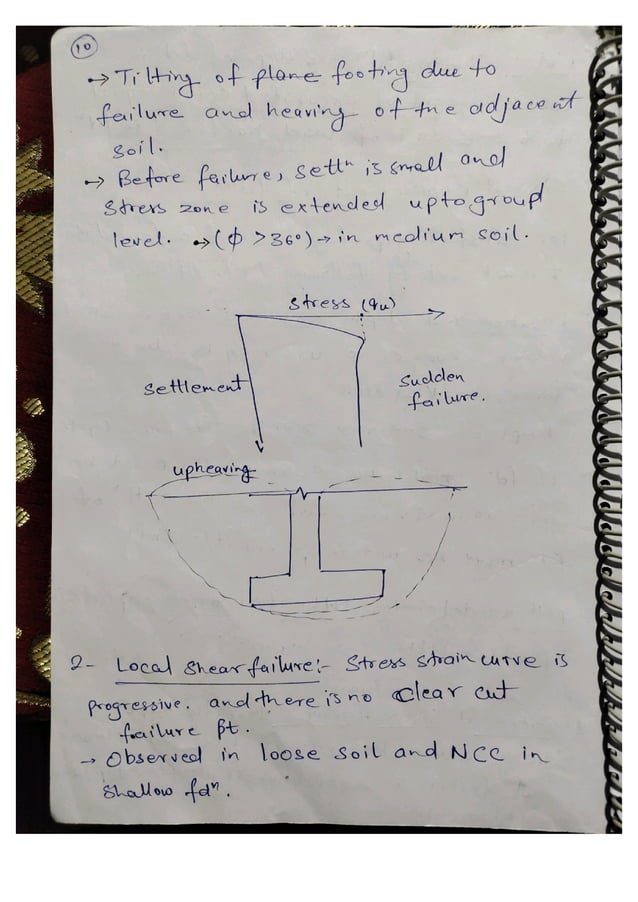 10
→ Tilting of plane footing due to
failure and heaving of the adjacent
soil.
→ Before failure, settⁿ is small and
stress zone is extended upto group
level. → (ϕ >36°) → in medium soil.
Stress (qu)
settlement
Sudden
failure.
upheaving
2- Local Shear failure:- Stress strain curve is
progressive. and there is no clear cut
failure pt.
→ Observed in loose soil and NCC in
Shallow fdⁿ.